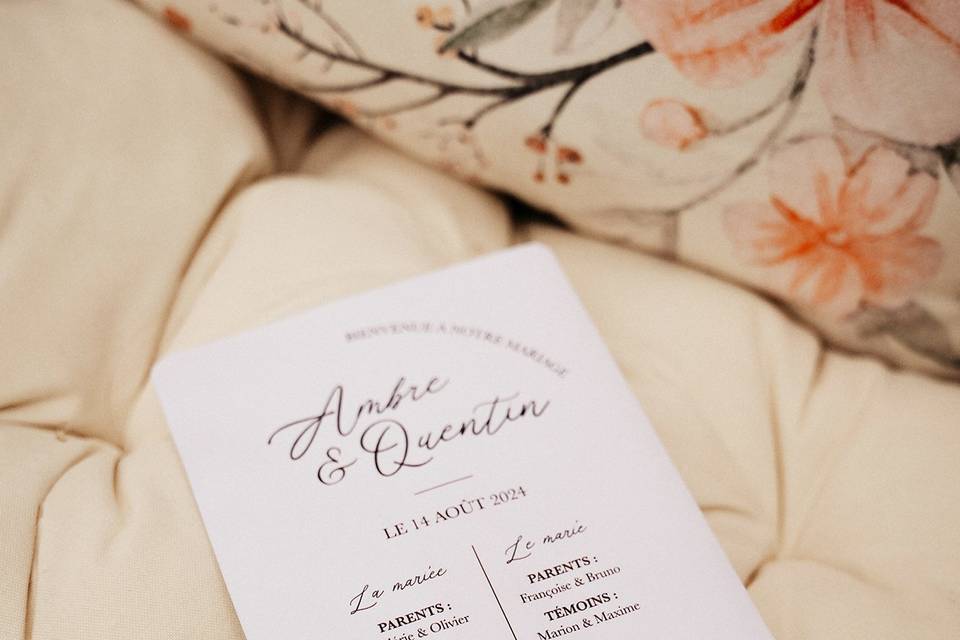 BIENVENUE A NOTRE MARIAGE
Ambre
& Quentin
LE 14 AOÛT 2024
La mariée
PARENTS :
& Olivier
Le marié
PARENTS :
Françoise & Bruno
TÉMOINS :
Marion & Maxime